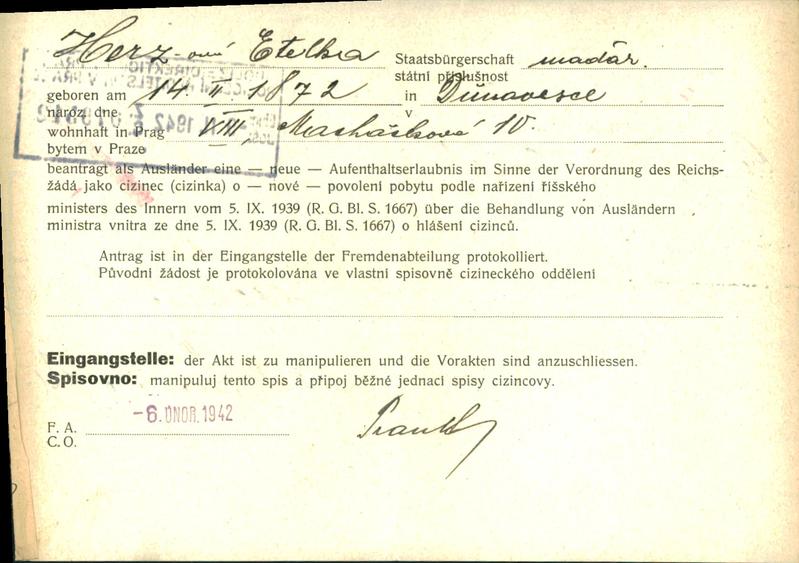 Herz ová Etelka Staatsbürgerschaft maďar.
státní příslušnost
geboren am 14 II. 1872 in Dunavesce
naroz. dne v
wohnhaft in Prag VIII,
bytem v Praze
beantragt als Ausländer eine — neue — Aufenthaltserlaubnis im Sinne der Verordnung des Reichs-
žádá jako cizinec (cizinka) o — nové — povolení pobytu podle nařízení říšského
ministers des Innern vom 5. IX. 1939 (R. G. Bl. S. 1667) über die Behandlung von Ausländern
ministra vnitra ze dne 5. IX. 1939 (R. G. Bl. S. 1667) o hlášení cizinců.
Antrag ist in der Eingangstelle der Fremdenabteilung protokolliert.
Původní žádost je protokolována ve vlastní spisovně cizineckého oddělení
Eingangstelle: der Akt ist zu manipulieren und die Vorakten sind anzuschliessen.
Spisovno: manipuluj tento spis a připoj běžné jednací spisy cizincovy.
-6. ÚNOR. 1942
F. A.
C. O.